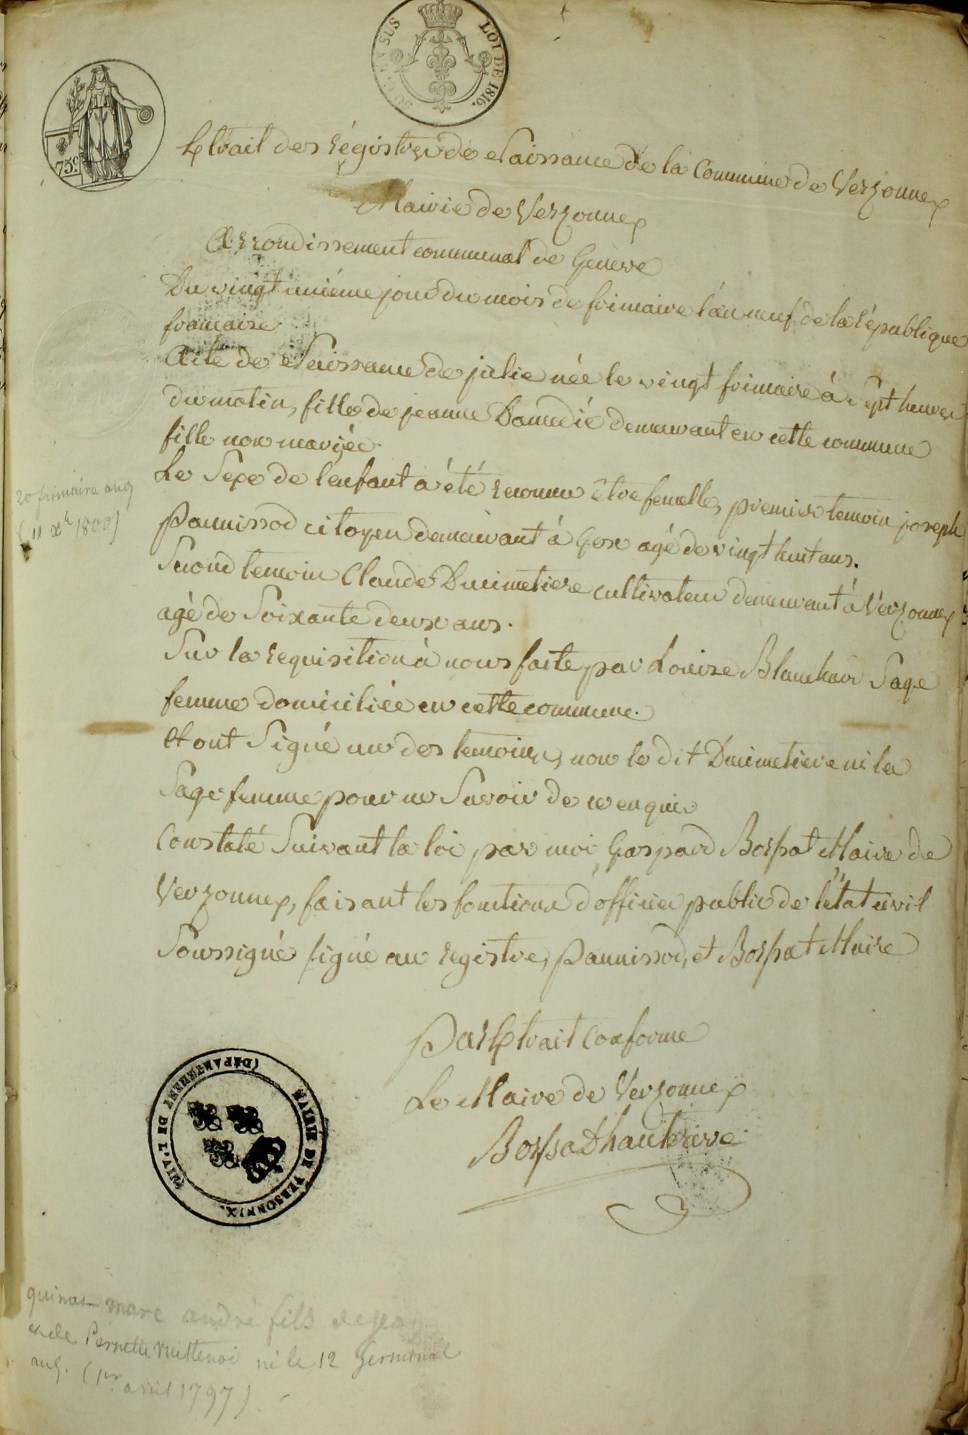 LOI DE 1816.
75c.
Extrait des régistres de Naissance de la Commune de Verzonnex
Mairie de Verzonnex
Arrondissement communal de Geneve
Du vingt unième jour du mois de frimaire l'an neuf de la république
francaise
Acte de Naissance de julie née le vingt frimaire à sept heures
du matin, fille de jeanne demeurant en cette commune
fille non mariée
Le Sexe de l'enfant a été reconnu être femelle, premier temoin joseph
Pannissod citoyen demeurant à Gex agé de vingt huit ans.
Second temoin Claude Ducimetiere cultivateur demeurant à Verzonnex
agé de Soixante deux ans.
Sur la requisition à nous faite par Louise Sage
femme domiciliée en cette commune.
Et ont Signé un des temoins, non le dit Ducimetiere ni la
Sage femme pour ne Savoir de ce enquis
Constaté Suivant la loi par moi Gaspard Bossat Maire de
Verzonnex, faisant les fonctions d'officier public de l'état civil
Soussigné signé au registre, Pannissod, et Bossat Maire
20 frimaire an 9
(11 Xbre 1800)
Par Extrait Conforme
Le Maire de Verzonnex
MAIRIE DE VERSONNEX. (DÉPARTEMENT DE L'AIN)
marc andré fils de
et de Pernette né le 12 Germinal
an 5. (1er avril 1797)